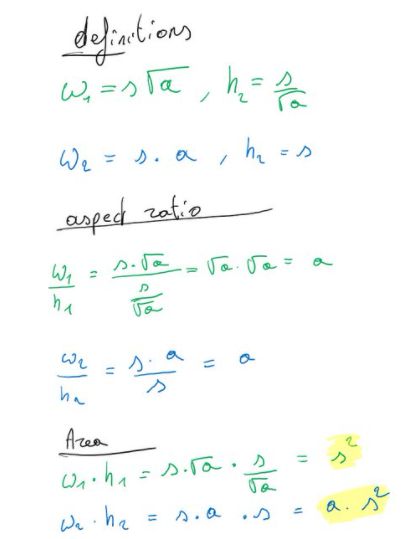 definitions
w₁ = s√a , h₂ = s/√a
w₂ = s · a , h₂ = s
aspect ratio
w₁/h₁ = (s·√a)/(s/√a) = √a · √a = a
w₂/h₂ = (s · a)/s = a
Area
w₁ · h₁ = s·√a · s/√a = s²
w₂ · h₂ = s·a · s = a · s²